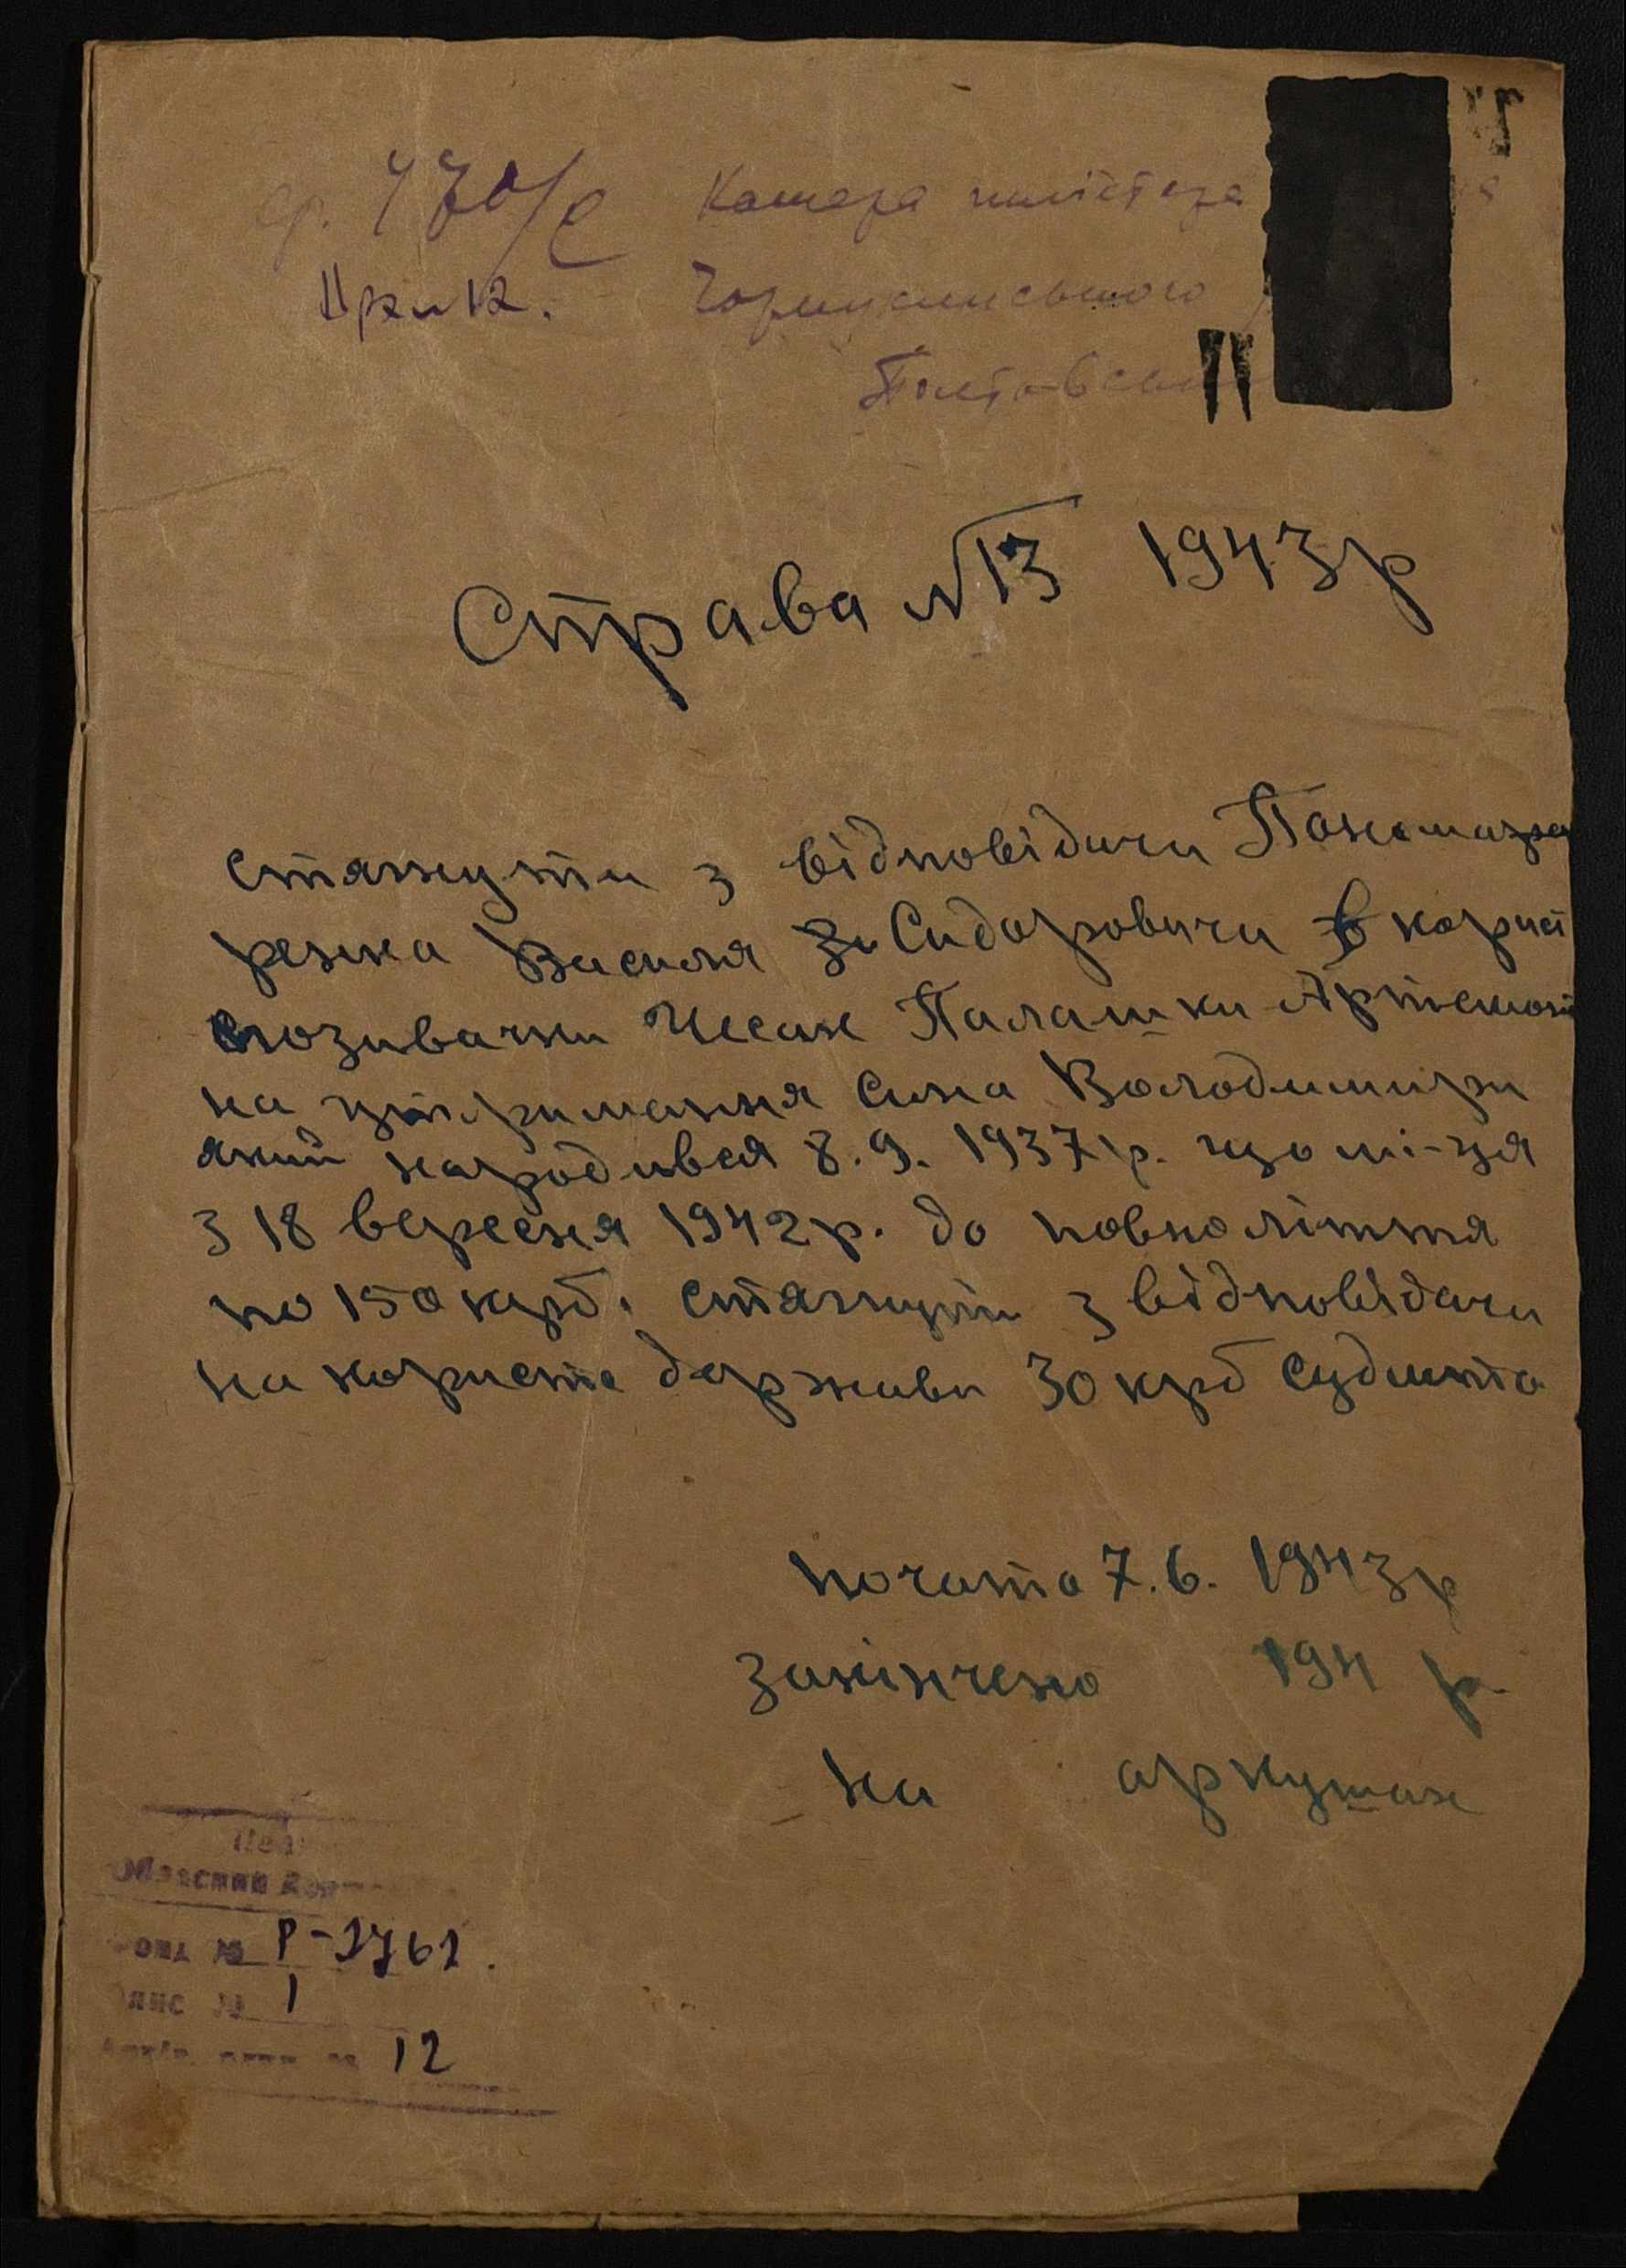 Камера
Полтавсь
Справа №13 1943р
стягнути з відповідачи Понома
ренка Василя Сидоровича в корист
позивачки Палашки Артемов
на утримання сина Володимира
який народився 8.9. 1937р. що мі-ця
з 18 вересня 1942р. до повноліття
по 150 крб. стягнути з відповідачи
на користь держави 30 крб судмита
почата 7.6. 1943р
закінчено 194 р.
на аркушах
Обласний
Фонд № Р-2761.
Опис № 1
12